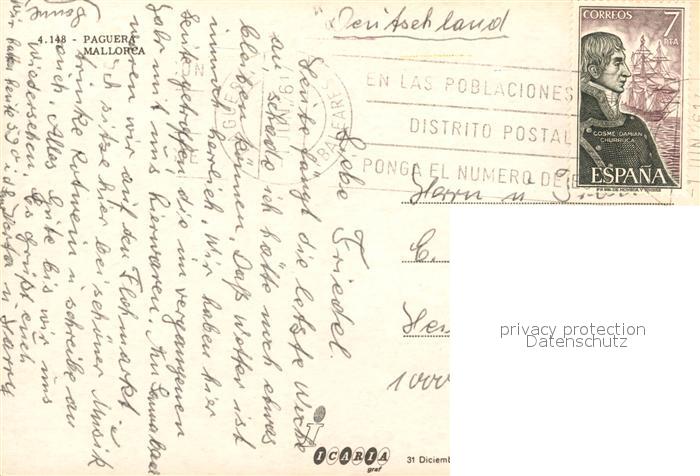 4.148 - PAGUERA
MALLORCA
Deutschland
CORREOS 7
PTA
COSME DAMIAN
CHURRUCA
ESPAÑA
EN LAS POBLACIONES
DISTRITO POSTAL
PONGA EL NUMERO DE
BALEARES
Liebe Friedel.
Heute fängt die letzte Woche
an, schade ich hätte noch etwas
bleiben können. Das Wetter ist
immer herrlich. Wir haben hier
Leute getroffen die im vergangenen
Jahr mit uns hier waren. Am
waren wir auf den Flohmarkt.
Ich sitze hier bei schöner Musik
trinke Rotwein u schreibe an
euch. Alles Gute bis wir uns
wiedersehen. Es grüßt euch
Wir hatten heute 39°. u Harry
Herrn u
E.
1000
privacy protection
Datenschutz
ICARIA
graf
31 Diciemb